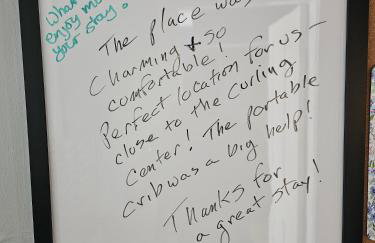 What
enjoy m
your stay?
The place was
Charming + so
comfortable!
Perfect location for us -
close to the Curling
Center! The portable
crib was a big help!
Thanks for
a great stay!